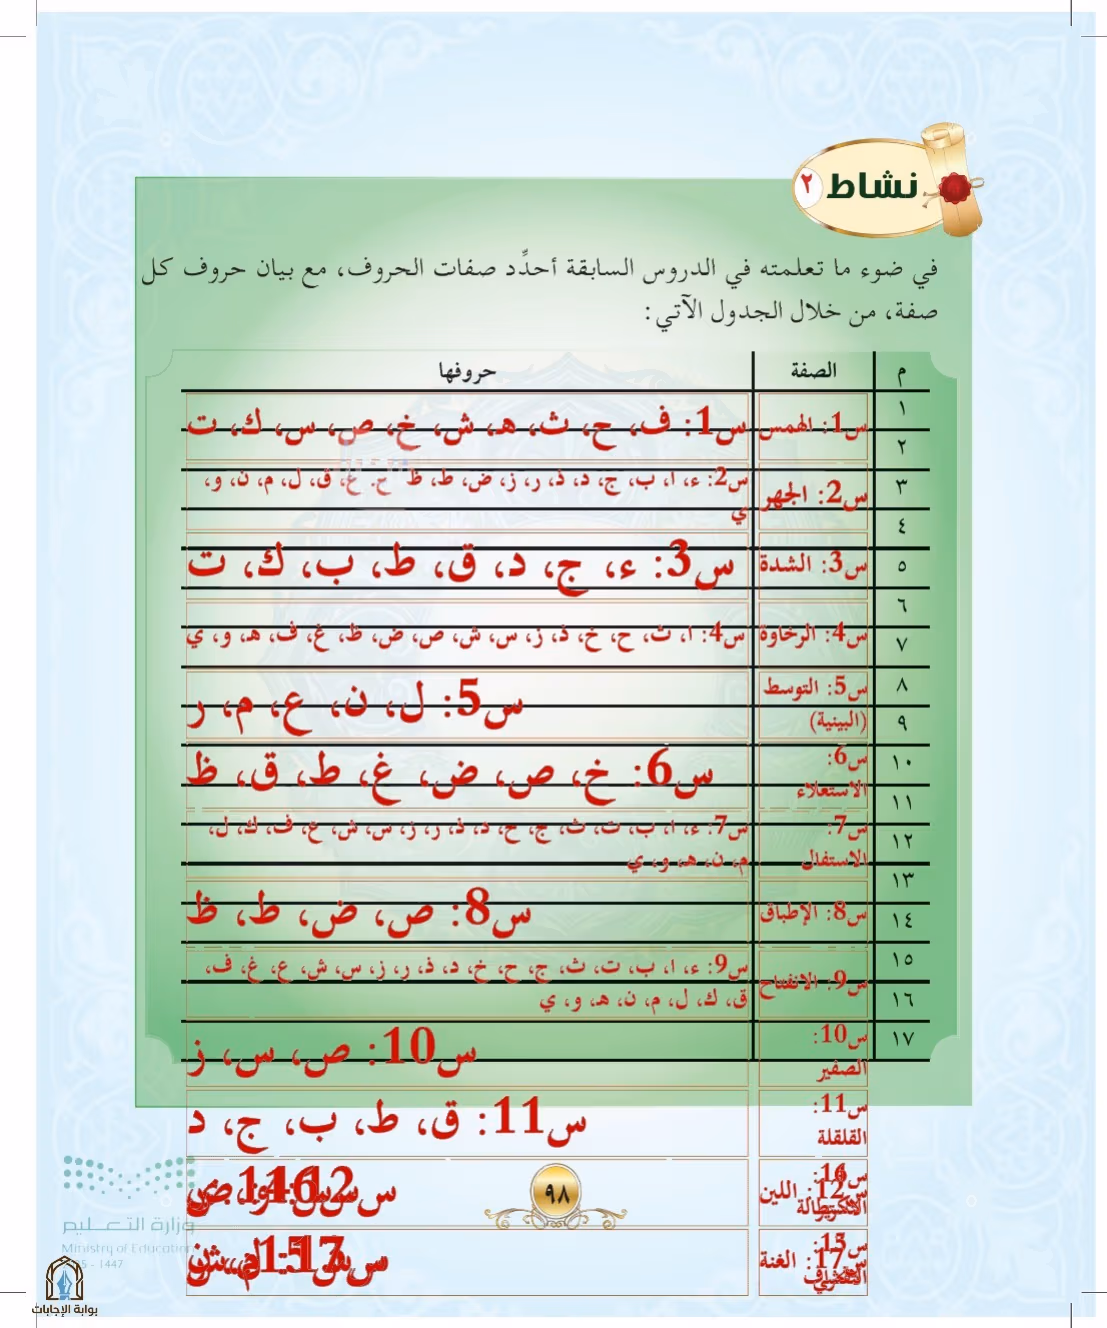 نشاط ٢
في ضوء ما تعلمته في الدروس السابقة أحدِّد صفات الحروف، مع بيان حروف كل
صفة، من خلال الجدول الآتي:
م الصفة حروفها
١
٢
٣
٤
٥
٦
٧
٨
٩
١٠
١١
١٢
١٣
١٤
١٥
١٦
١٧
س1: الهمس س1: ف، ح، ث، هـ، ش، خ، ص، س، ك، ت
س2: الجهر س2: ء، ا، ب، ج، د، ذ، ر، ز، ض، ط، ظ، ع، غ، ق، ل، م، ن، و،
ي
س3: الشدة س3: ء، ج، د، ق، ط، ب، ك، ت
س4: الرخاوة س4: ا، ث، ح، خ، ذ، ز، س، ش، ص، ض، ظ، غ، ف، هـ، و، ي
س5: التوسط
(البينية) س5: ل، ن، ع، م، ر
س6:
الاستعلاء س6: خ، ص، ض، غ، ط، ق، ظ
س7:
الاستفال س7: ء، ا، ب، ت، ث، ج، ح، د، ذ، ر، ز، س، ش، ع، ف، ك، ل،
م، ن، هـ، و، ي
س8: الإطباق س8: ص، ض، ط، ظ
س9: الانفتاح س9: ء، ا، ب، ت، ث، ج، ح، خ، د، ذ، ر، ز، س، ش، ع، غ، ف،
ق، ك، ل، م، ن، هـ، و، ي
س10:
الصفير س10: ص، س، ز
س11:
القلقلة س11: ق، ط، ب، ج، د
اللين
الغنة
٩٨
وزارة التعليم
Ministry of Education
1447
بوابة الإجابات